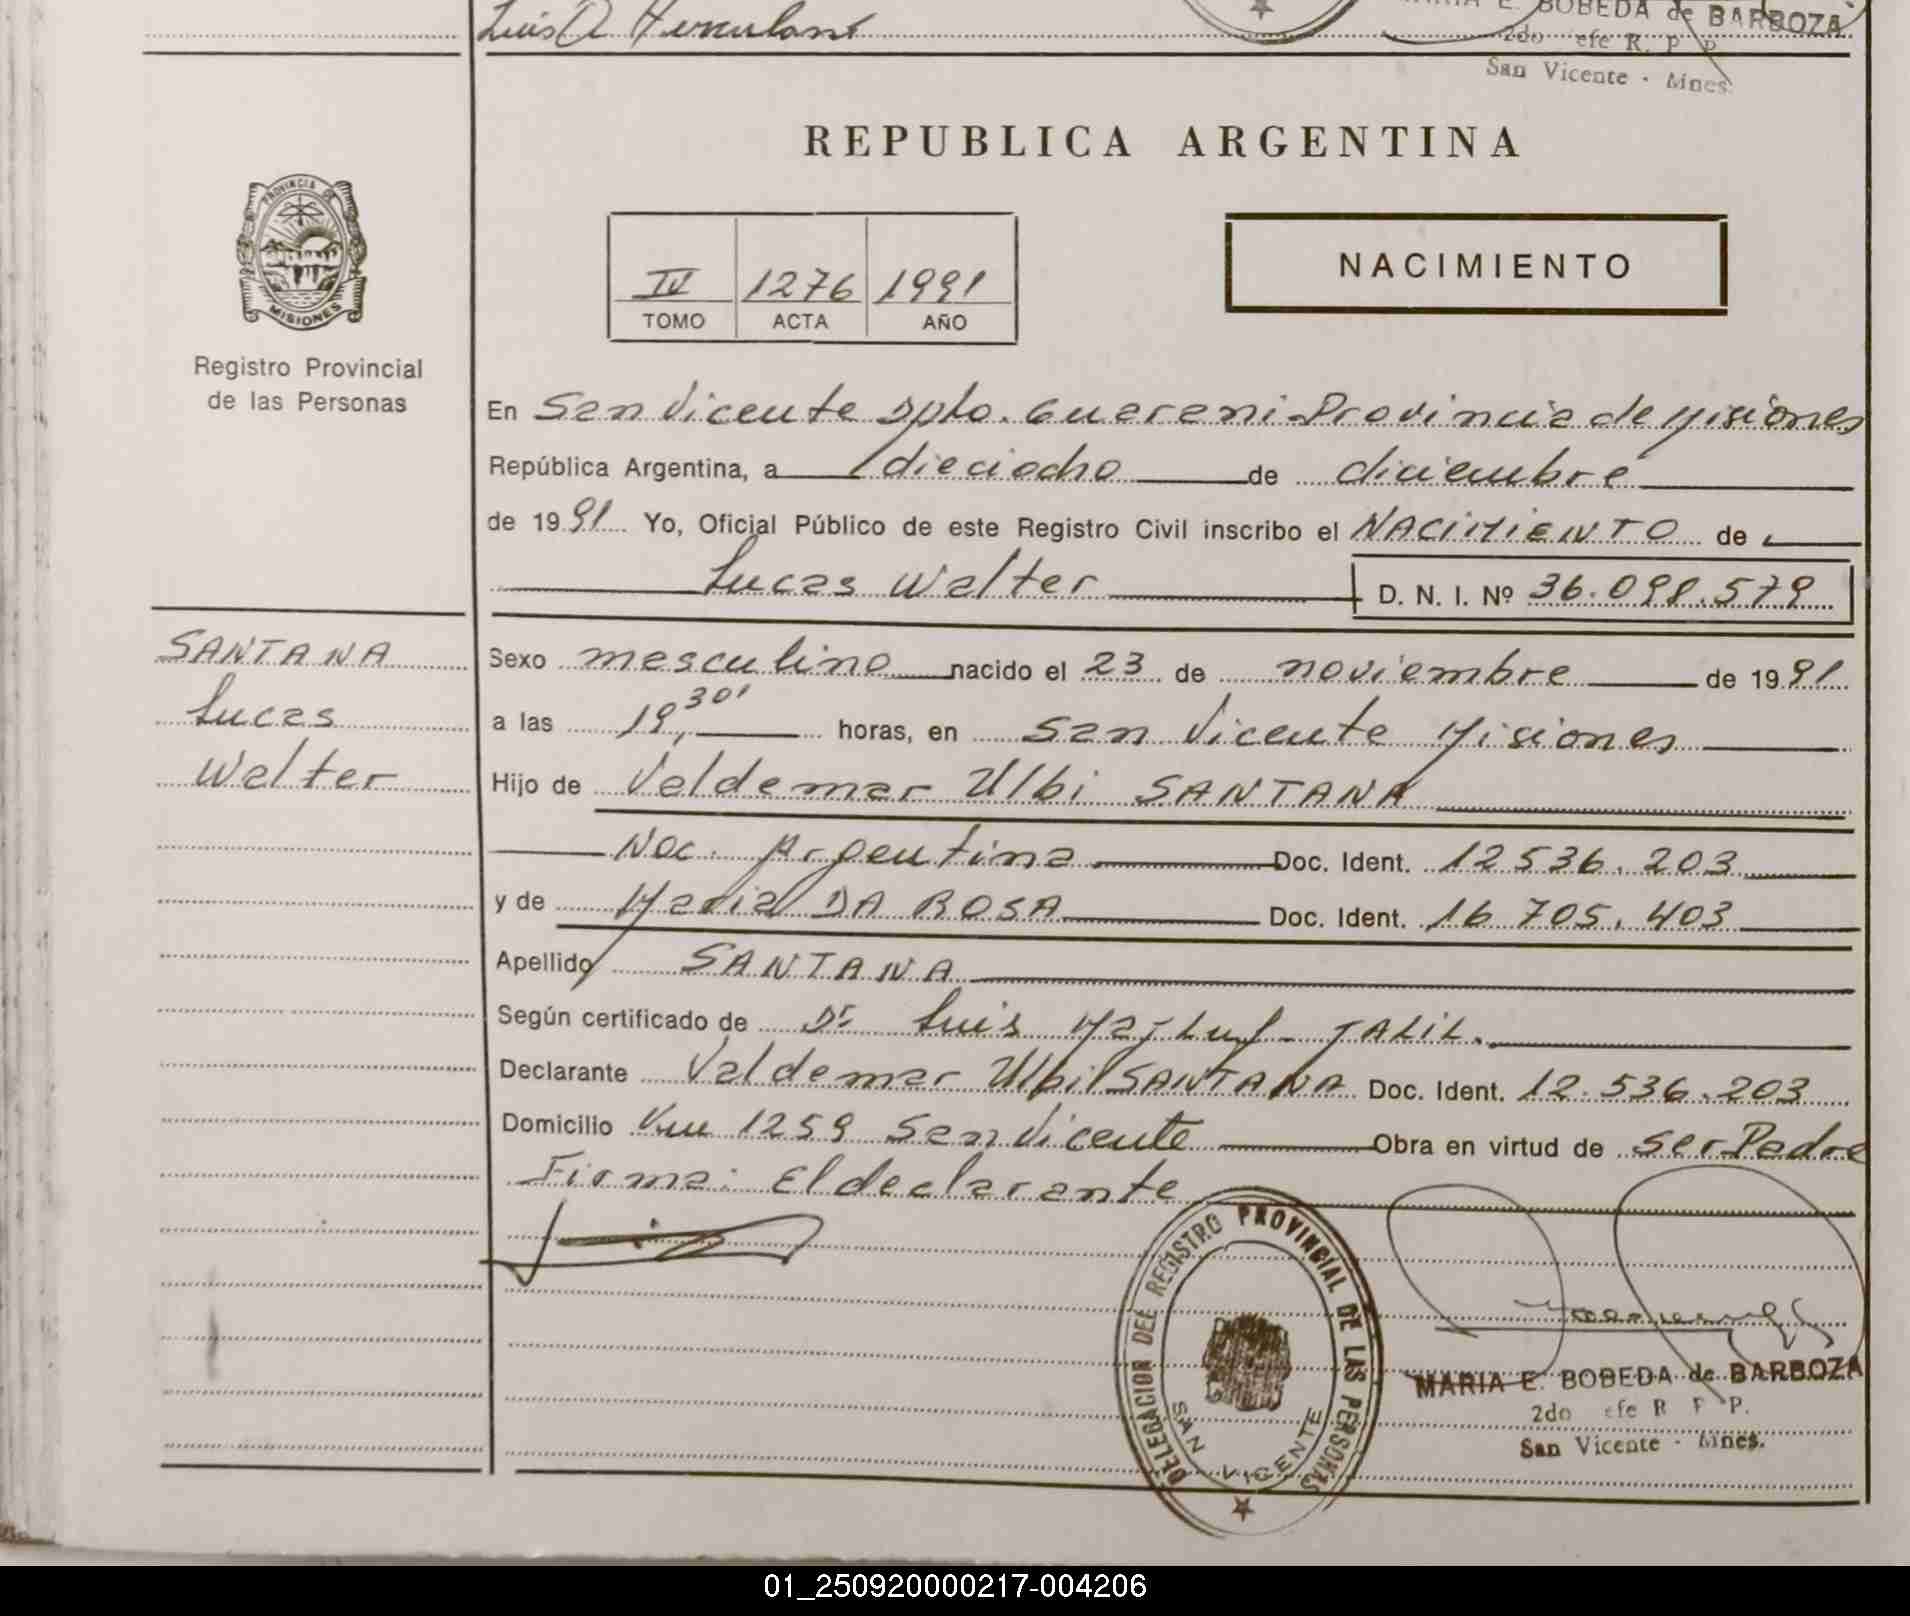 Luis A Herculano
MARIA E. BOBEDA de BARBOZA
2do efe R. P P.
San Vicente - Mnes.
REPUBLICA ARGENTINA
PROVINCIA DE
MISIONES
Registro Provincial
de las Personas
IV 1276 1991
TOMO ACTA AÑO
NACIMIENTO
En San Vicente Dpto. Guarani Provincia de Misiones
República Argentina, a dieciocho de diciembre
de 1991 Yo, Oficial Público de este Registro Civil inscribo el NACIMIENTO de
Lucas Walter D. N. I. Nº 36.098.579
SANTANA
Lucas
Walter
Sexo masculino nacido el 23 de noviembre de 1991
a las 19,30' horas, en San Vicente Misiones
Hijo de Valdemar Ulbi SANTANA
Nac. Argentina Doc. Ident. 12536.203
y de Maria DA ROSA Doc. Ident. 16 705.403
Apellido SANTANA
Según certificado de Dr Luis Majluf - JALIL.
Declarante Valdemar Ulbi SANTANA Doc. Ident. 12.536.203
Domicilio Km 1259 San Vicente Obra en virtud de ser Padre
Firma: El declarante
DELEGACION DEL REGISTRO PROVINCIAL DE LAS PERSONAS
SAN VICENTE
MARIA E. BOBEDA de BARBOZA
2do efe R P P.
San Vicente - Mnes.
01_250920000217-004206